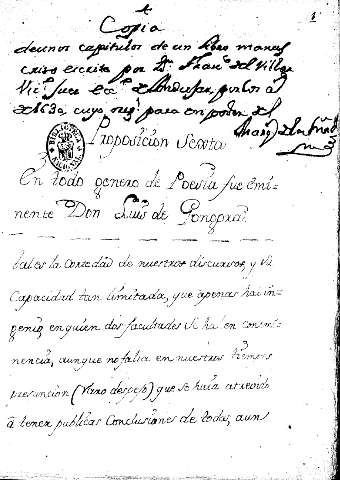 Copia
de unos capitulos de un libro manus
crito escrito por D. Fran.co del Villar
Vic.o Juez ec.co de Andujar, por los a.s
de 1630 cuyo orig.l para en poder del
Marq.s de la
1
BIBLIOTECA NACIONAL
Proposicion Sexta
En todo genero de Poesia fue emi-
nente Don Luis de Gongora.
tal es la cortedad de nuestros discursos, y su
Capacidad tan limitada, que apenas hai in-
genio, en quien dos facultades se hallen con emi-
nencia, aunque no falta en nuestros tiempos
presuncion (vano despejo) que se haia atrevido
à tener publicas Conclusiones de todas, aun